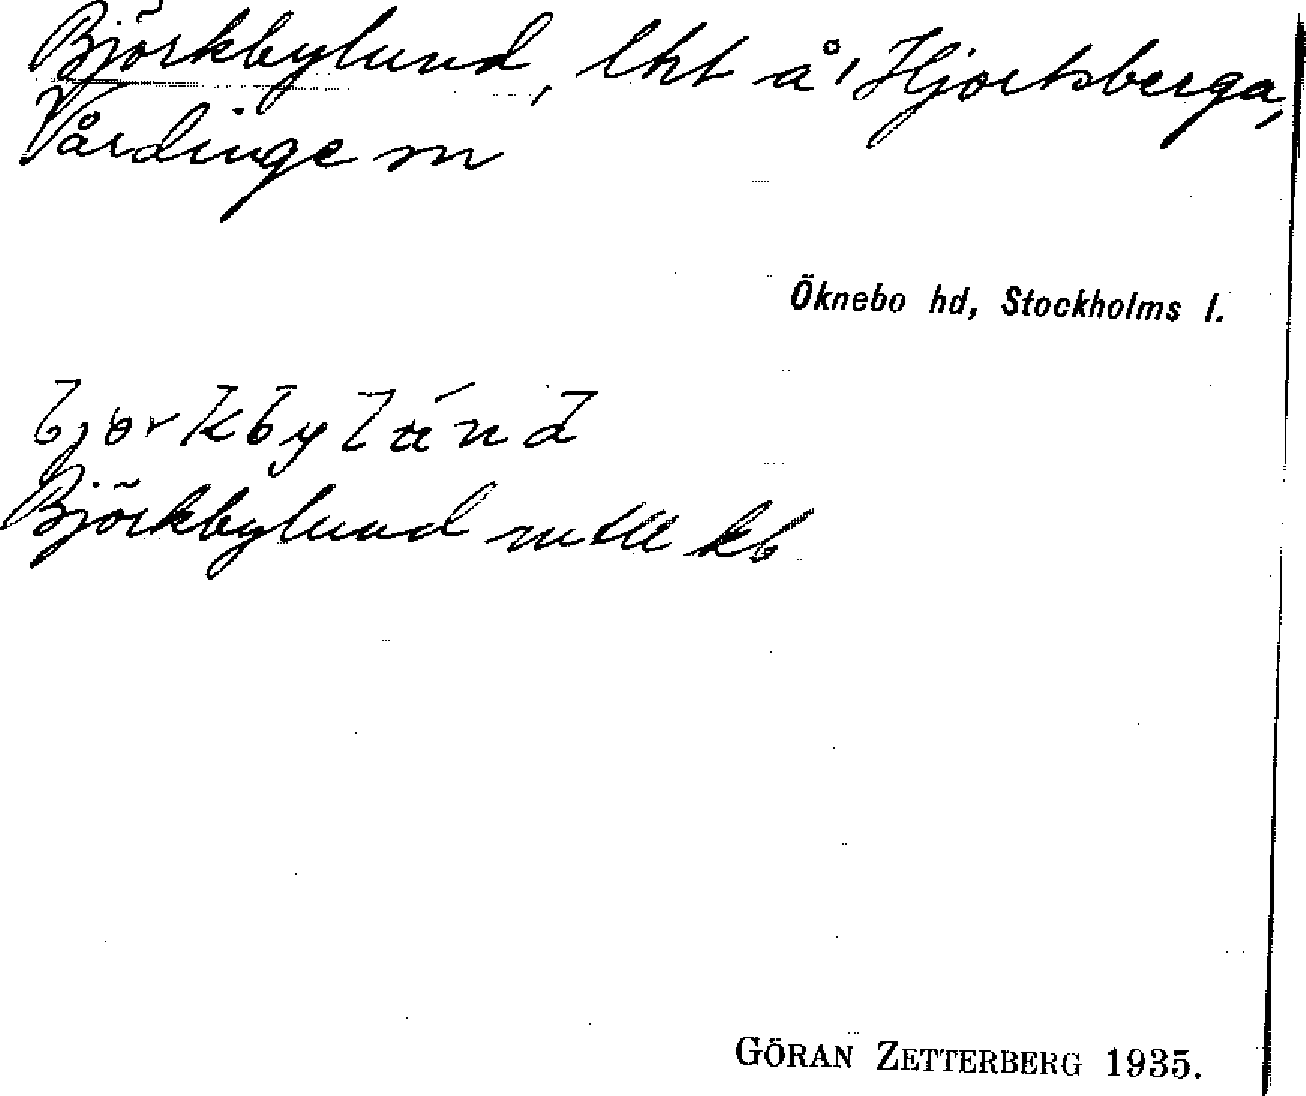 Björkbylund, lht å Hjortsberga,
Vårdinge sn
Öknebo hd, Stockholms l.
bjørkbylúnd
Björkbylund mtll kb
GÖRAN ZETTERBERG 1935.